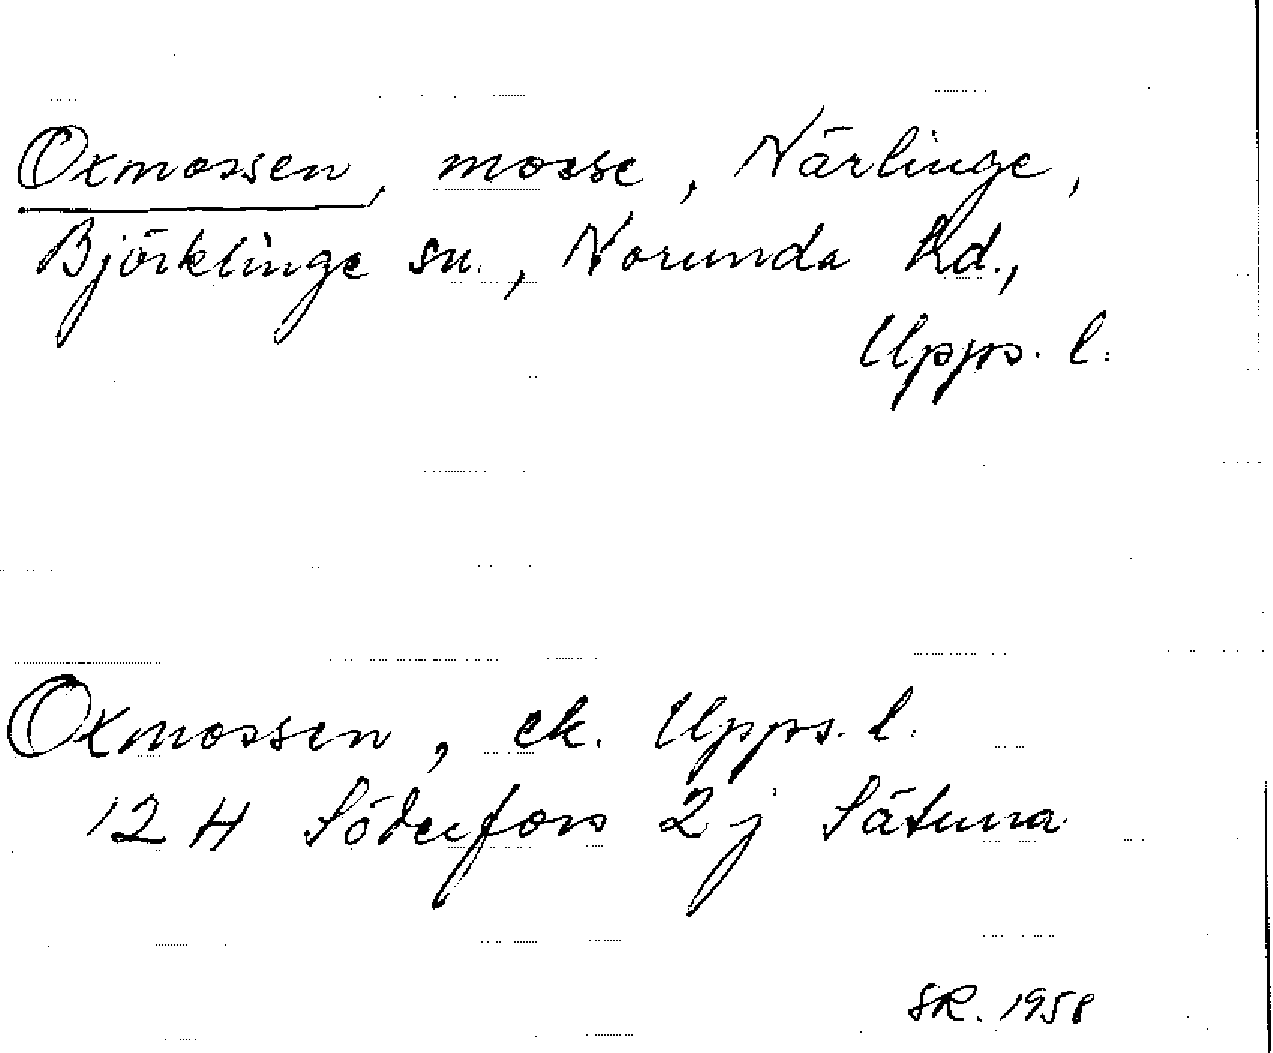 Oxmossen, mosse, Närlinge,
Björklinge sn., Norunda hd.,
Upps. l.
Oxmossen, ek. Upps. l.
12 H Söderfors 2 j Sätuna
SR. 1958